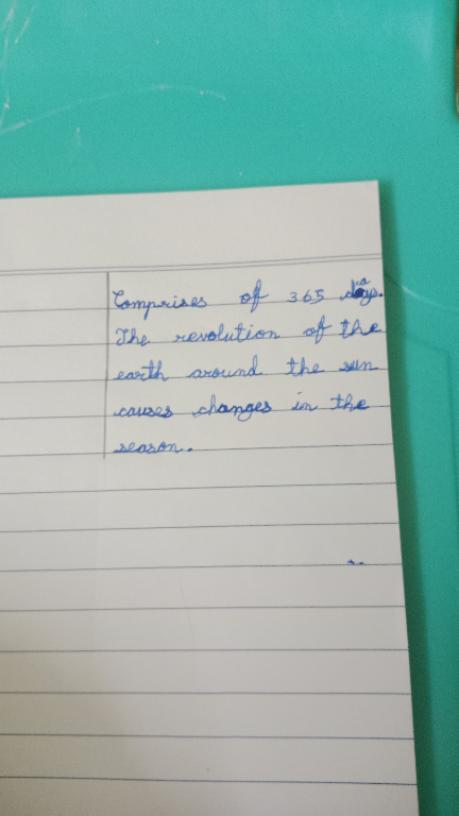 Comprises of 365 days.
The revolution of the
earth around the sun
causes changes in the
season.